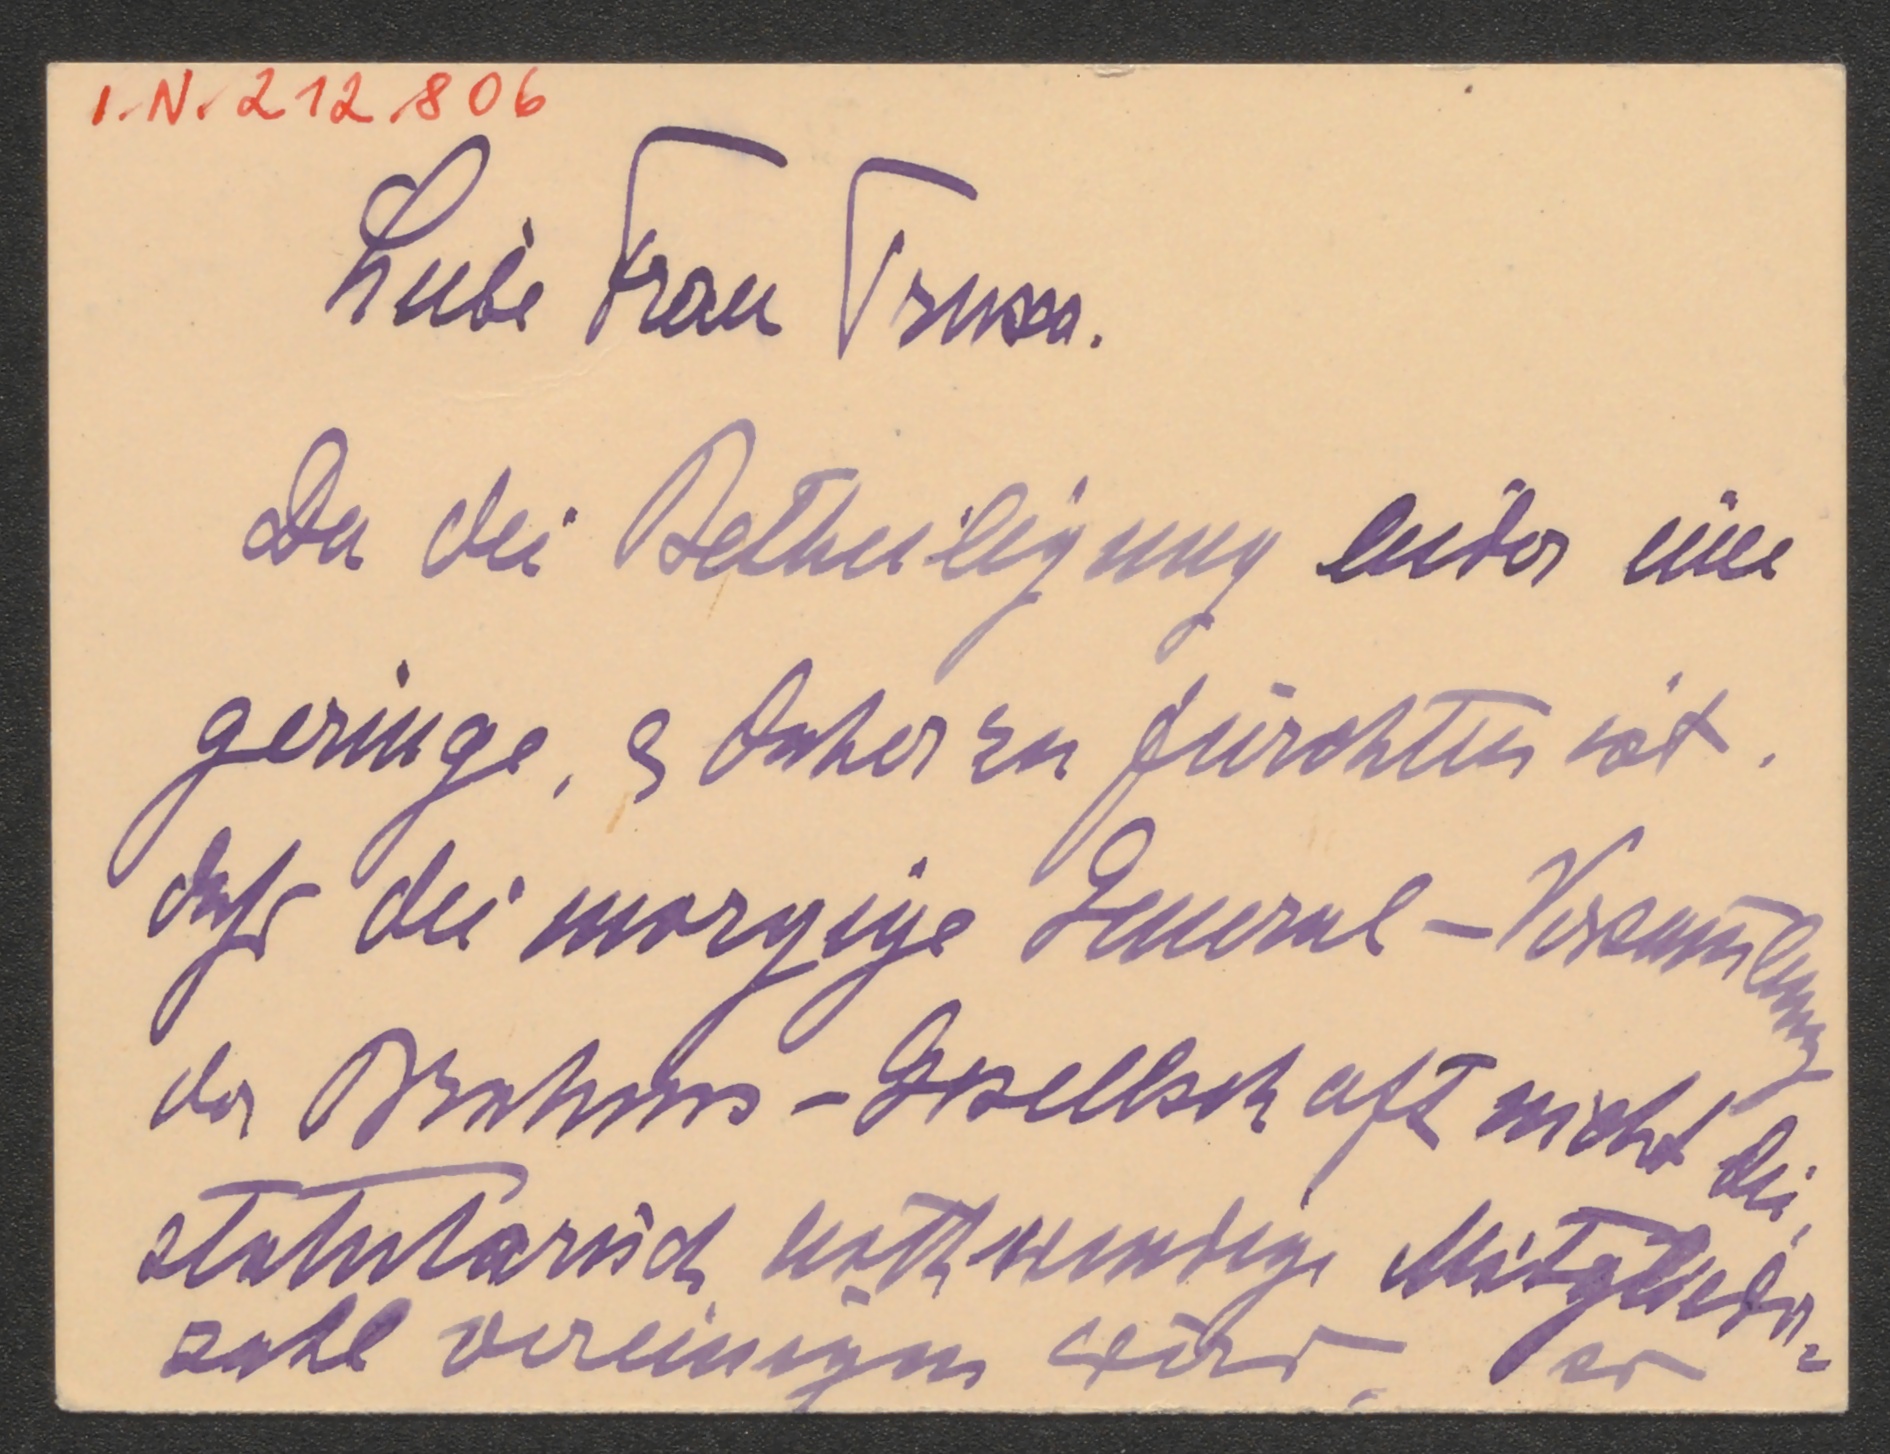 I.N. 212.806
Liebe Frau Truxa.
Da die Betheiligung leider eine
geringe, & daher zu fürchten ist,
daß die morgige General-Versam̄lung
der Brahms-Gesellschaft nicht die
statutarisch nothwendige Mitglieder=
zahl vereinigen wird, so